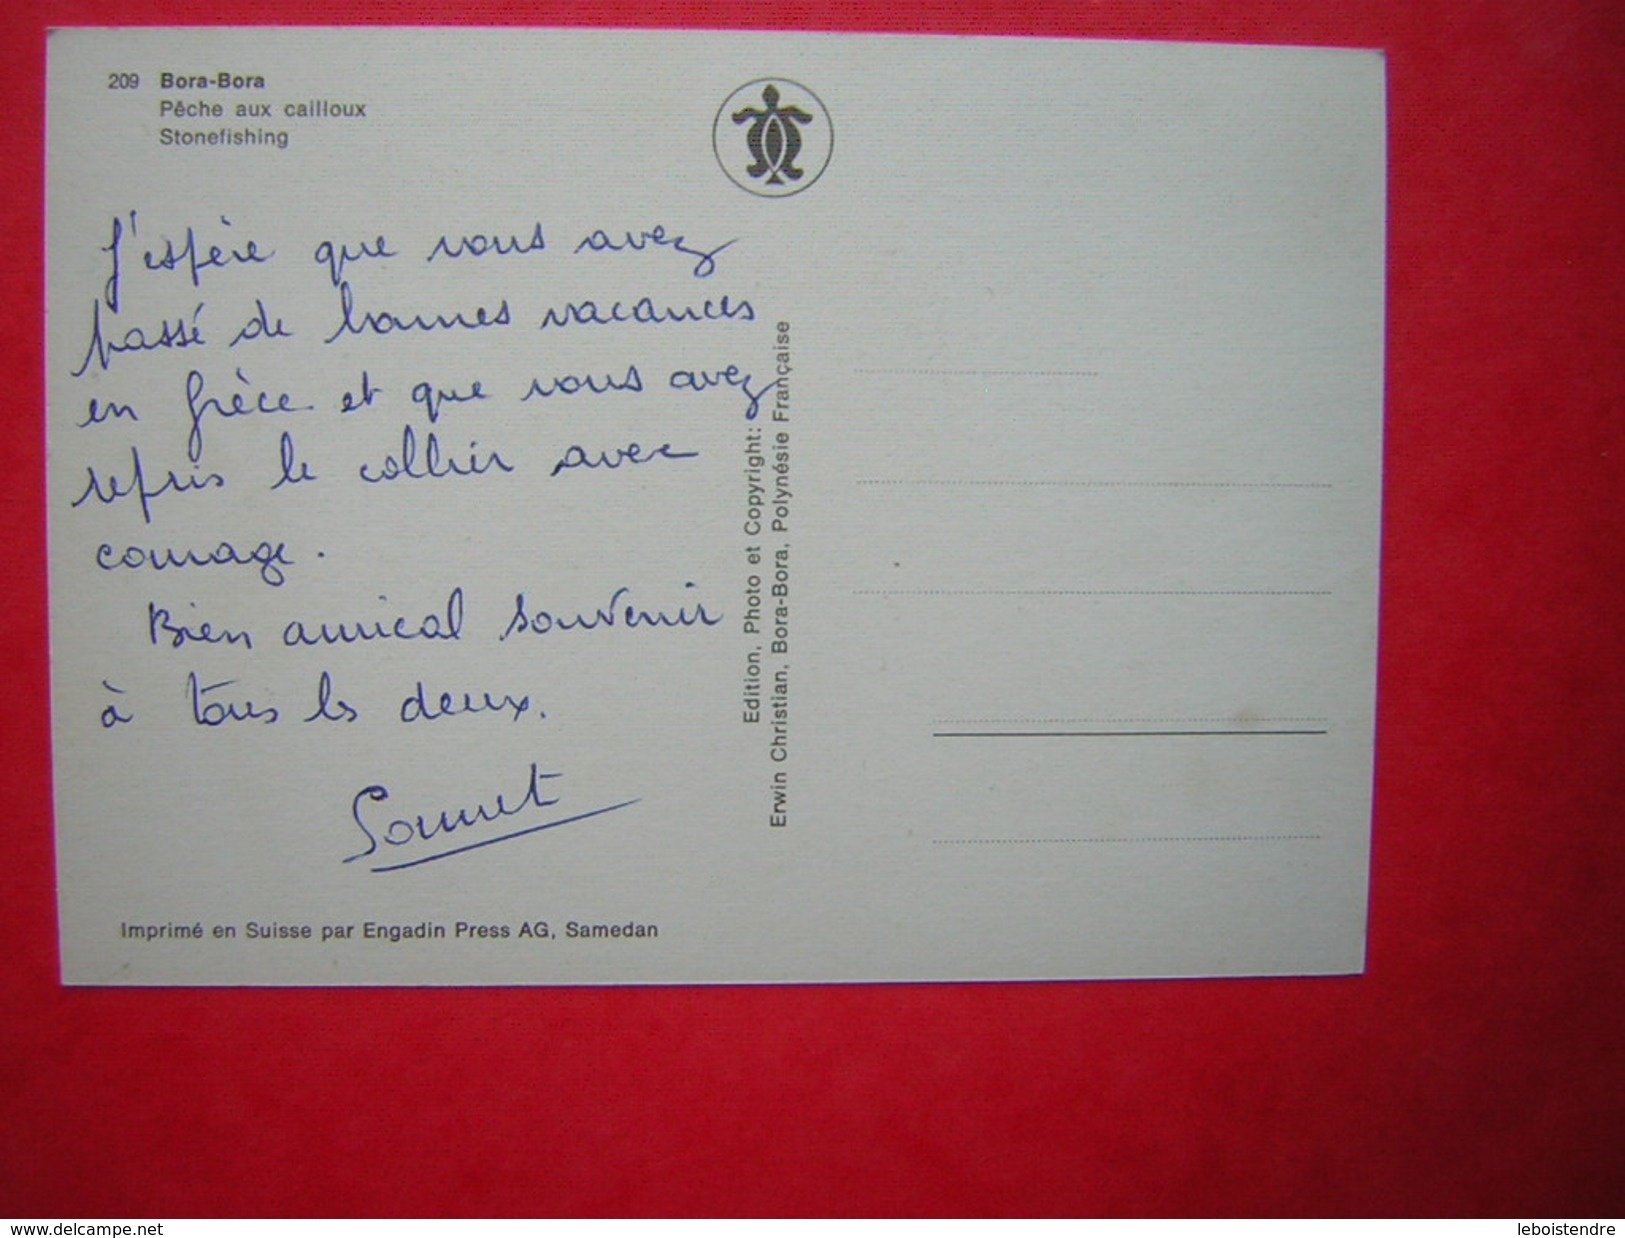 209 Bora-Bora
Pêche aux cailloux
Stonefishing
J'espère que vous avez
passé de bonnes vacances
en Grèce et que vous avez
repris le collier avec
courage.
Bien amical souvenir
à tous les deux.
Edition, Photo et Copyright:
Erwin Christian, Bora-Bora, Polynésie Française
Imprimé en Suisse par Engadin Press AG, Samedan
www.delcampe.net
leboistendre